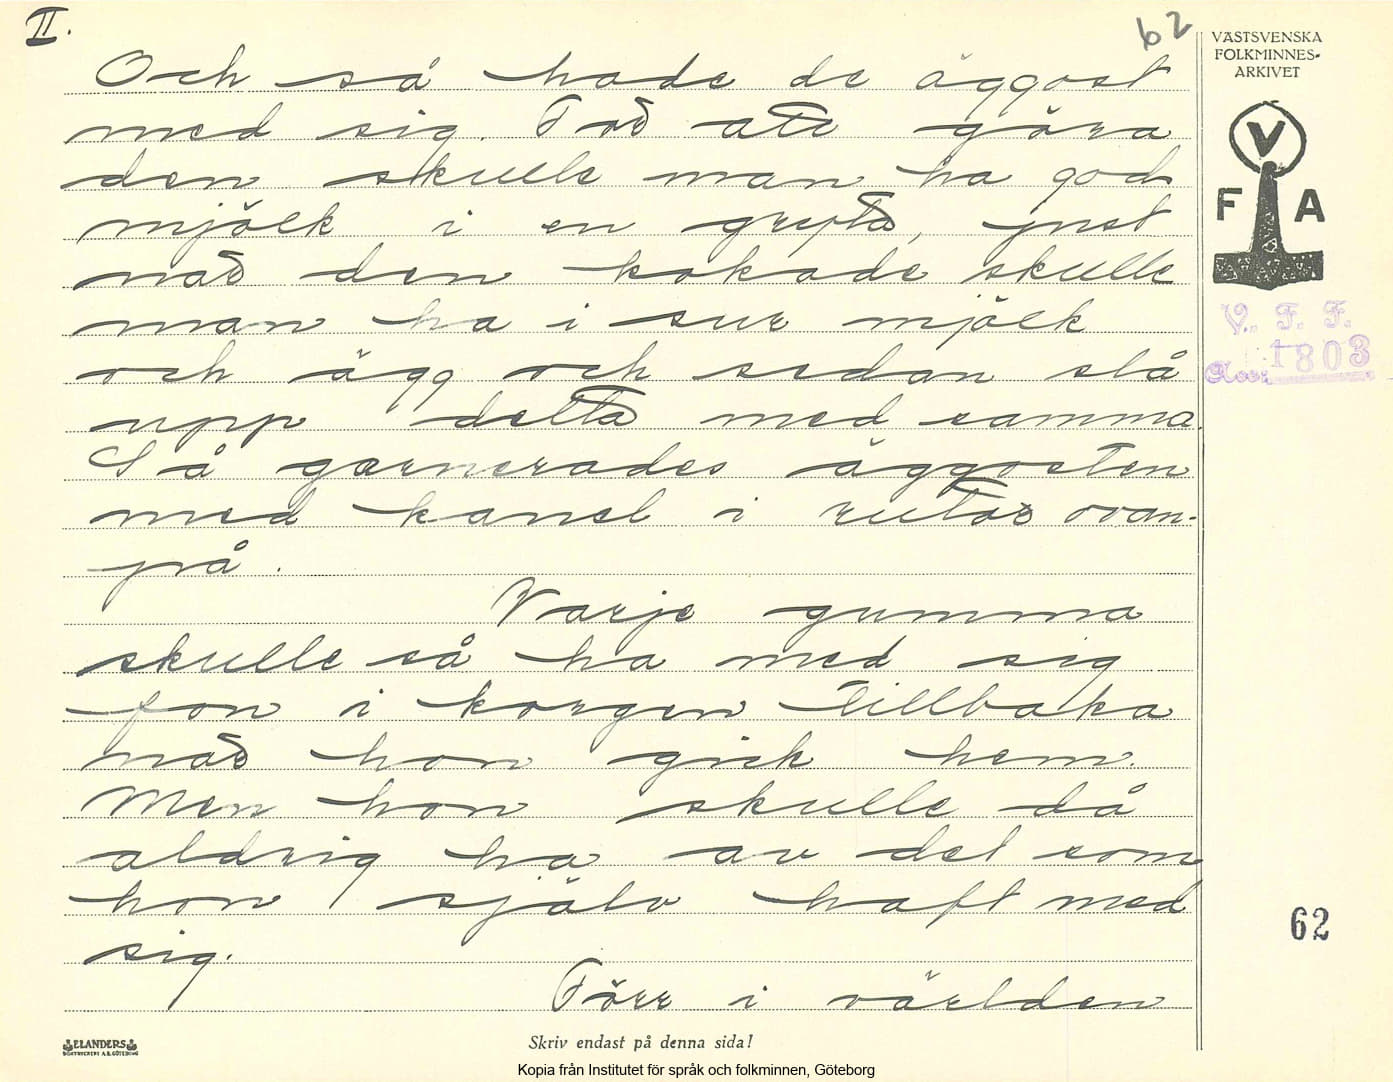 II.
62
VÄSTSVENSKA
FOLKMINNES-
ARKIVET
V
F A
V. F. F.
Acc: 1803
Och så hade de äggost
med sig. För att göra
den skulle man ha god
mjölk i en gryta, just
när den kokade skulle
man ha i sur mjölk
och ägg och sedan slå
upp detta med samma.
Så garnerades äggosten
med kanel i rutor ovan-
på.
Varje gumma
skulle så ha med sig
fon i korgen tillbaka
när hon gick hem.
Men hon skulle då
aldrig ha av det som
hon själv haft med
sig.
Förr i världen
62
ELANDERS
BOKTRYCKERI A.B. GÖTEBORG
Skriv endast på denna sida!
Kopia från Institutet för språk och folkminnen, Göteborg